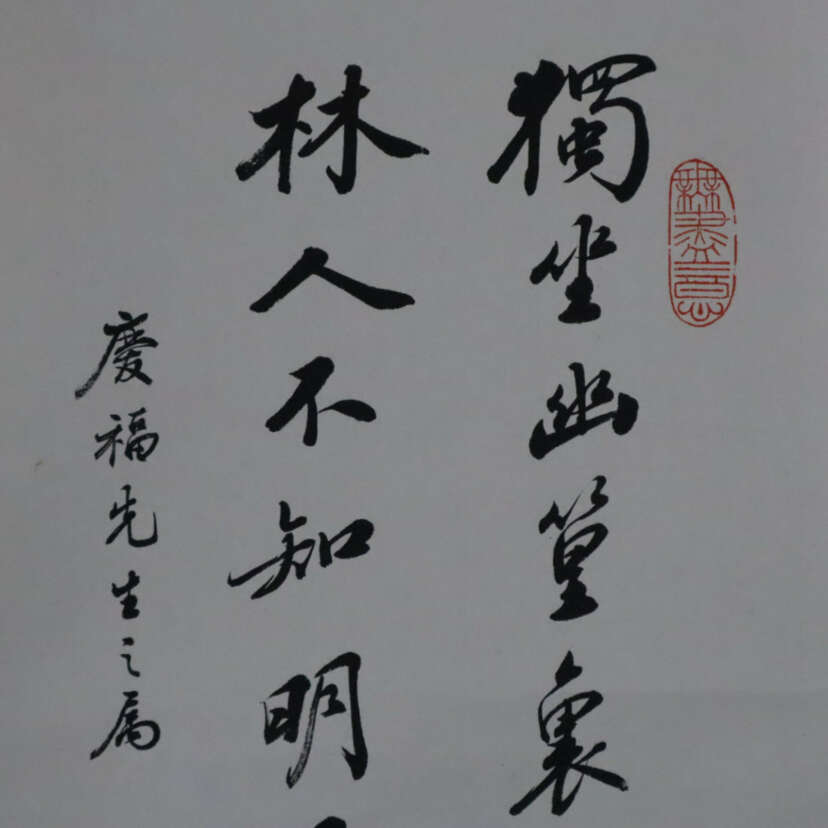 獨坐幽篁裏
林人不知明
慶福先生之属